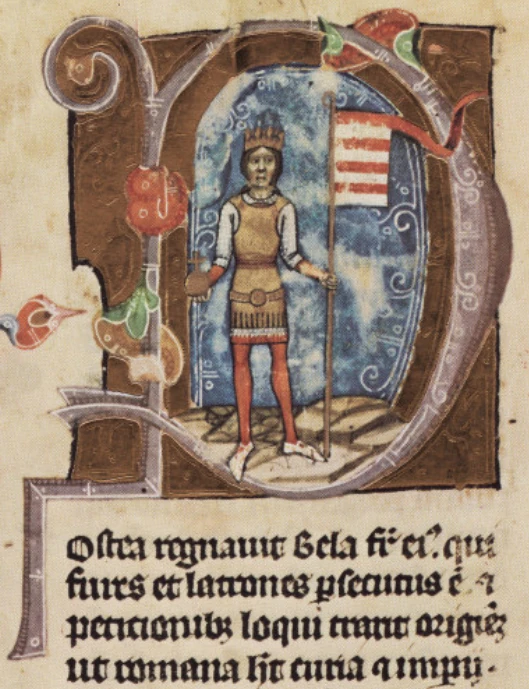 Postea regnauit Bela fr̄ ei⁹. qui
fures et latrones ꝑsecutus ē ⁊
peticionibꝫ loqui traxit originē
ut romana ht̄ curia ⁊ impii.